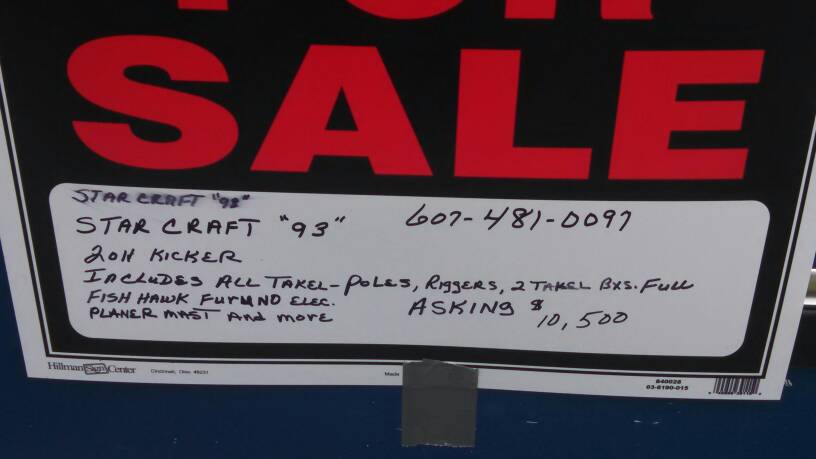 FOR
SALE
STAR CRAFT "93"
STAR CRAFT "93" 607-481-0097
20H KICKER
INCLUDES ALL TAKEL-POLES, RIGGERS, 2 TAKEL BXS. FULL
FISH HAWK FURUNO ELEC. ASKING $
PLANER MAST AND MORE 10,500
Hillman Sign Center Cincinnati, Ohio 45231 Made 840028
03-6190-015